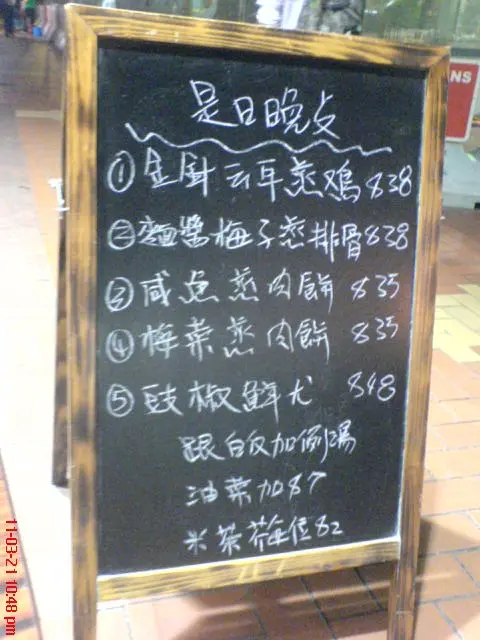 是日晚点
① 金針云耳蒸鸡 $38
② 麵醬梅子蒸排骨 $38
③ 咸鱼蒸肉餅 $35
④ 梅菜蒸肉餅 $35
⑤ 豉椒鲜尤 $48
跟白饭加例湯
油菜加$7
米茶芥每位$2
NS
11-03-21 10:48 pm